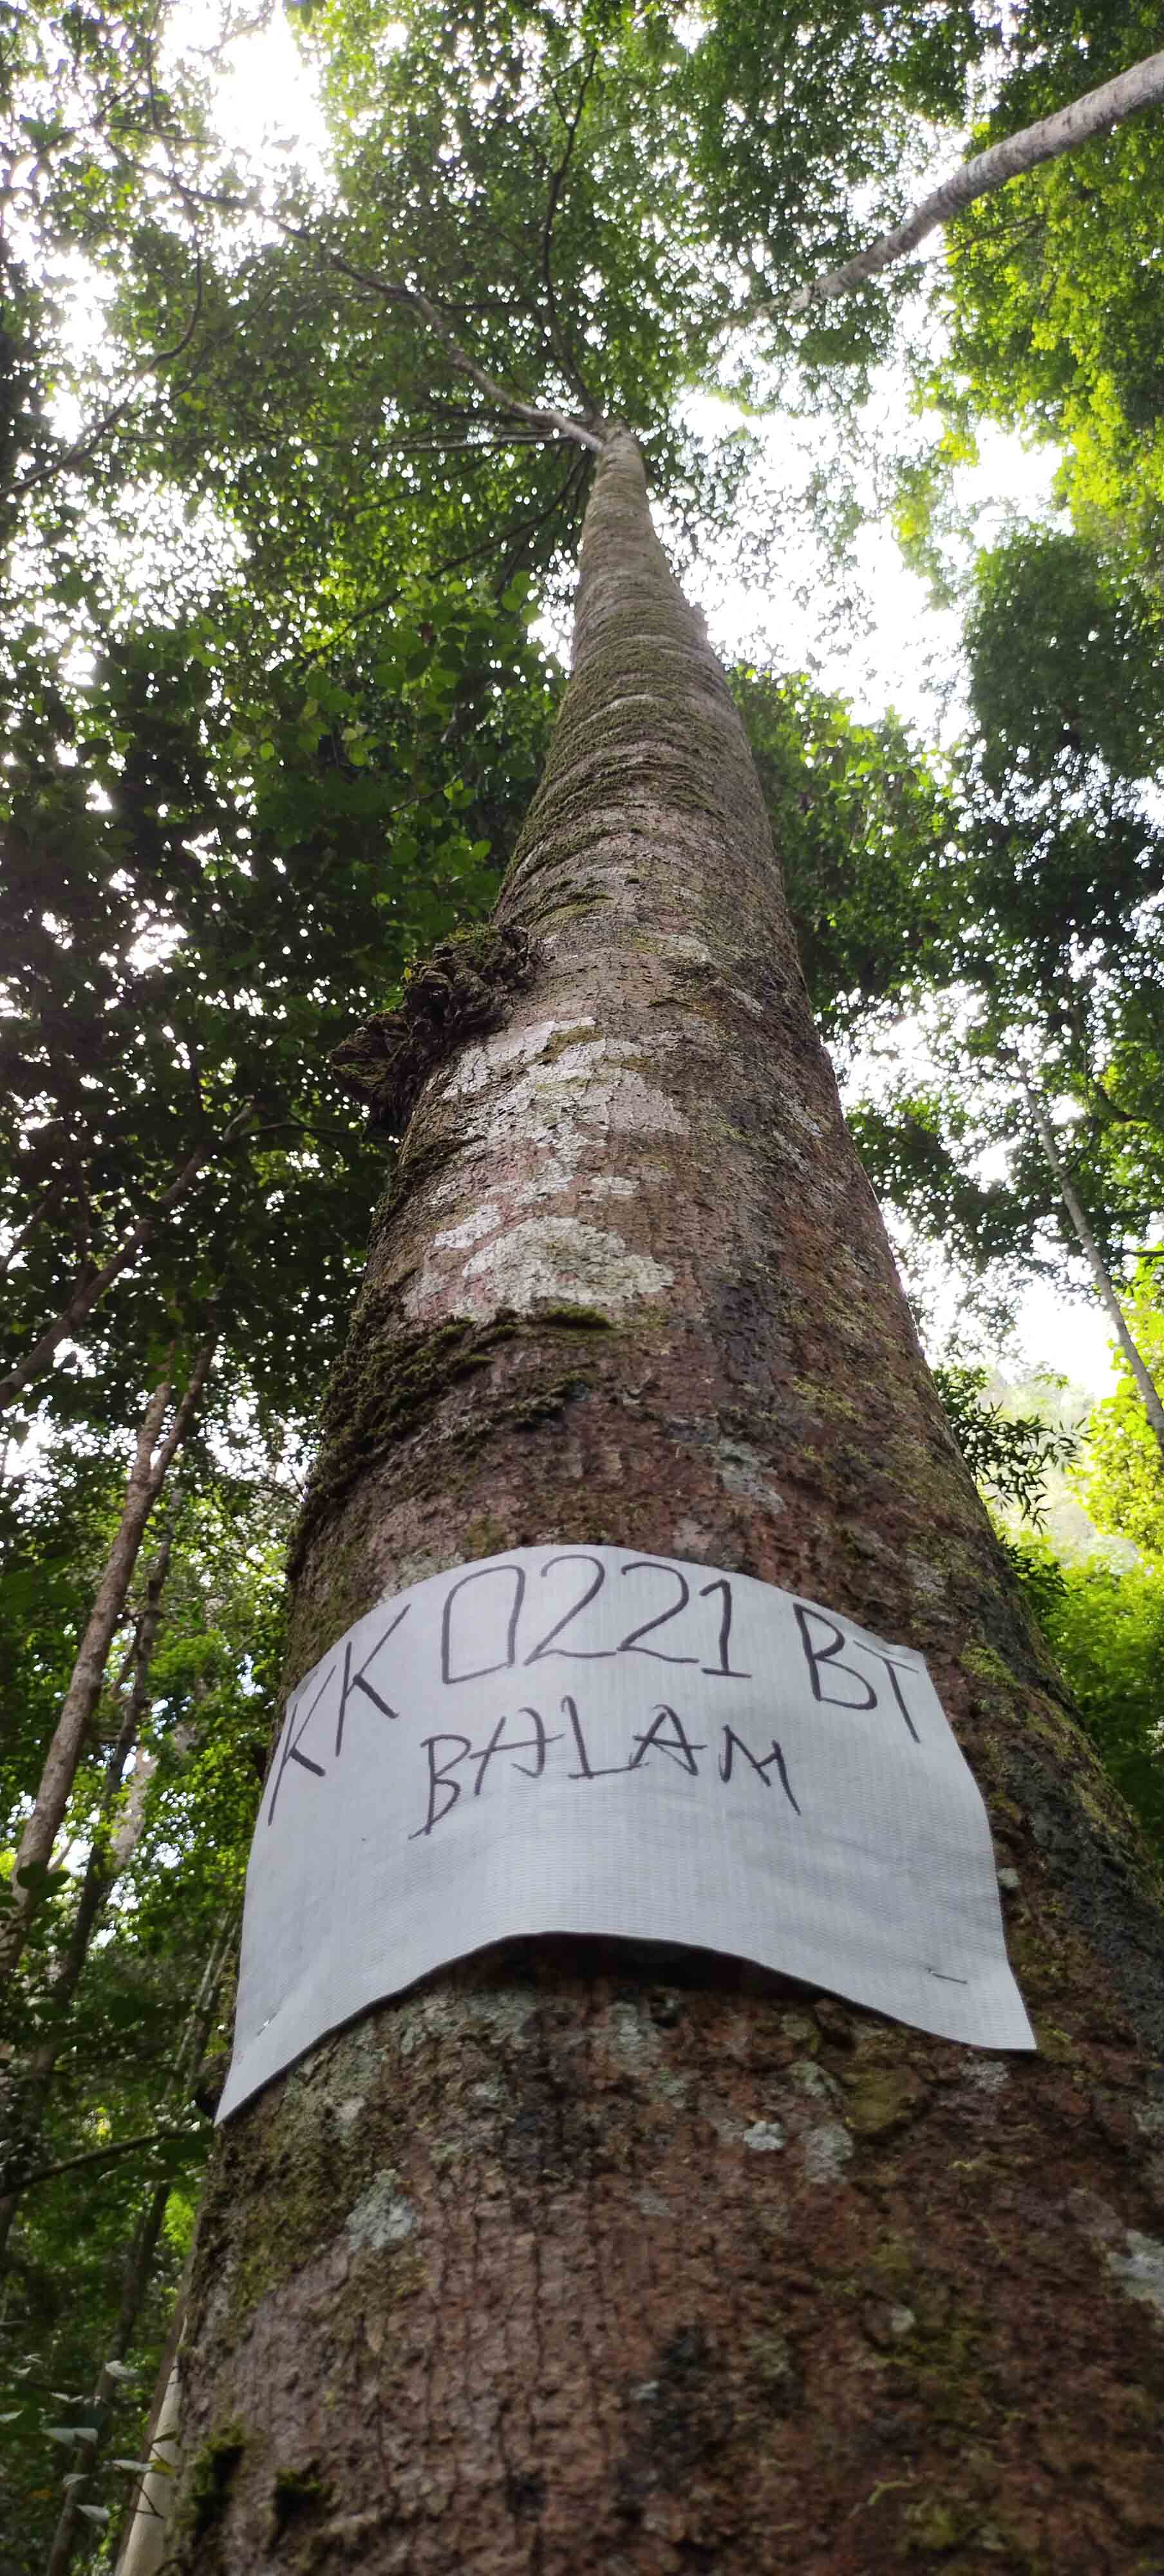 KK 0221 BT
BALAM